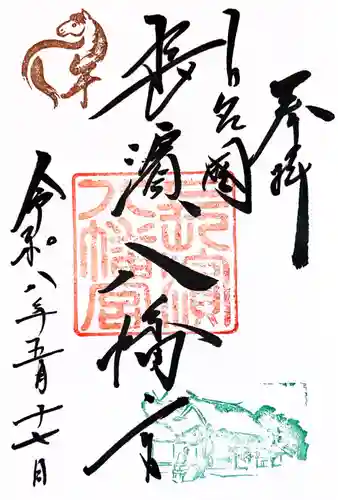 奉拝
長濱八幡宮
令和八年五月十七日
長濱
八幡宮
午